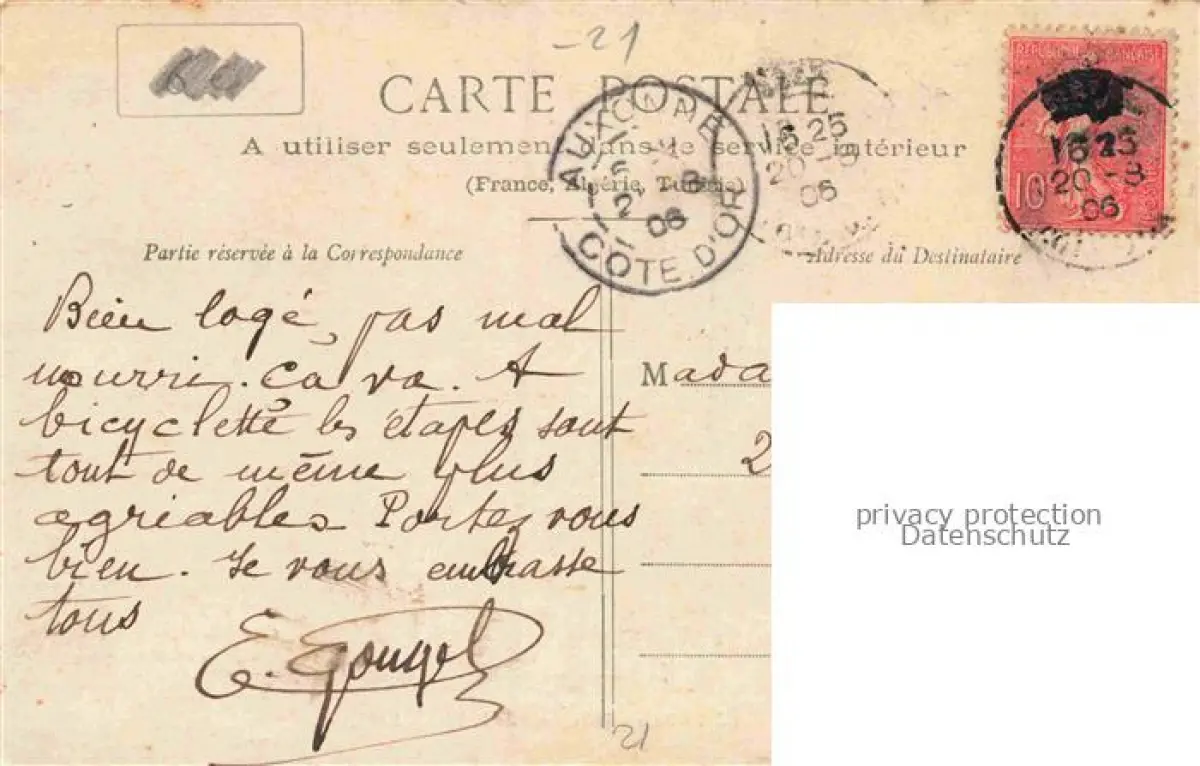 -21
CARTE POSTALE
A utiliser seulement dans le service intérieur
(France, Algérie, Tunisie)
AUXONNE
COTE D'OR
06
16 25
20 -8
06
RÉPUBLIQUE FRANÇAISE
10
20 -8
06
Partie réservée à la Correspondance
Adresse du Destinataire
Bien logé, pas mal
nourri. Ca va. A
bicyclette les étapes sont
tout de même plus
agréables Portez vous
bien. Je vous embrasse
tous
E. Gougel
Mada
2
21
privacy protection
Datenschutz